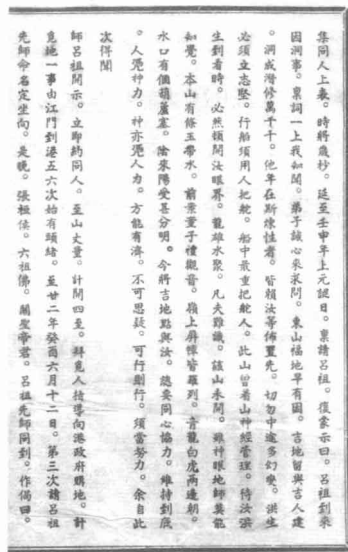 集同人上表。時將歲杪。延至壬申年上元誕日。稟請呂祖。復蒙示曰。呂祖到來
因洞事。稟詞一上我知聞。弟子誠心來求問。東山福地早有因。吉地留與吉人建
。洞成潛修萬千千。他年在斯煉性者。皆賴汝等佈置先。切勿中途多幻變。洪生
必須立志堅。行船須用人把舵。船中最重把舵人。此山曾着山神經管理。待汝洪
生到看時。必然頓開汝眼界。龍雄水聚。凡夫難識。該山未開。雖神眼地師莫能
知覺。本山有條玉帶水。前案童子禮觀音。嶺上屏幛皆羅列。青龍白虎兩邊朝。
水口有個葫蘆塞。陰來陽受甚分明。今將吉地點與汝。總要同心協力。維持到底
。人凴神力。神亦凴人力。方能有濟。不可思疑。可行則行。須當努力。余自此
次得聞
師呂祖開示。立即約同人。至山丈量。計開四至。拜覓人指導向港政府購地。計
覓地一事由江門到港五六次始有頭緒。至廿二年癸酉六月十二日。第三次請呂祖
先師命名定坐向。是晚。張祖侯。六祖佛。關聖帝君。呂祖先師同到。作偈曰。